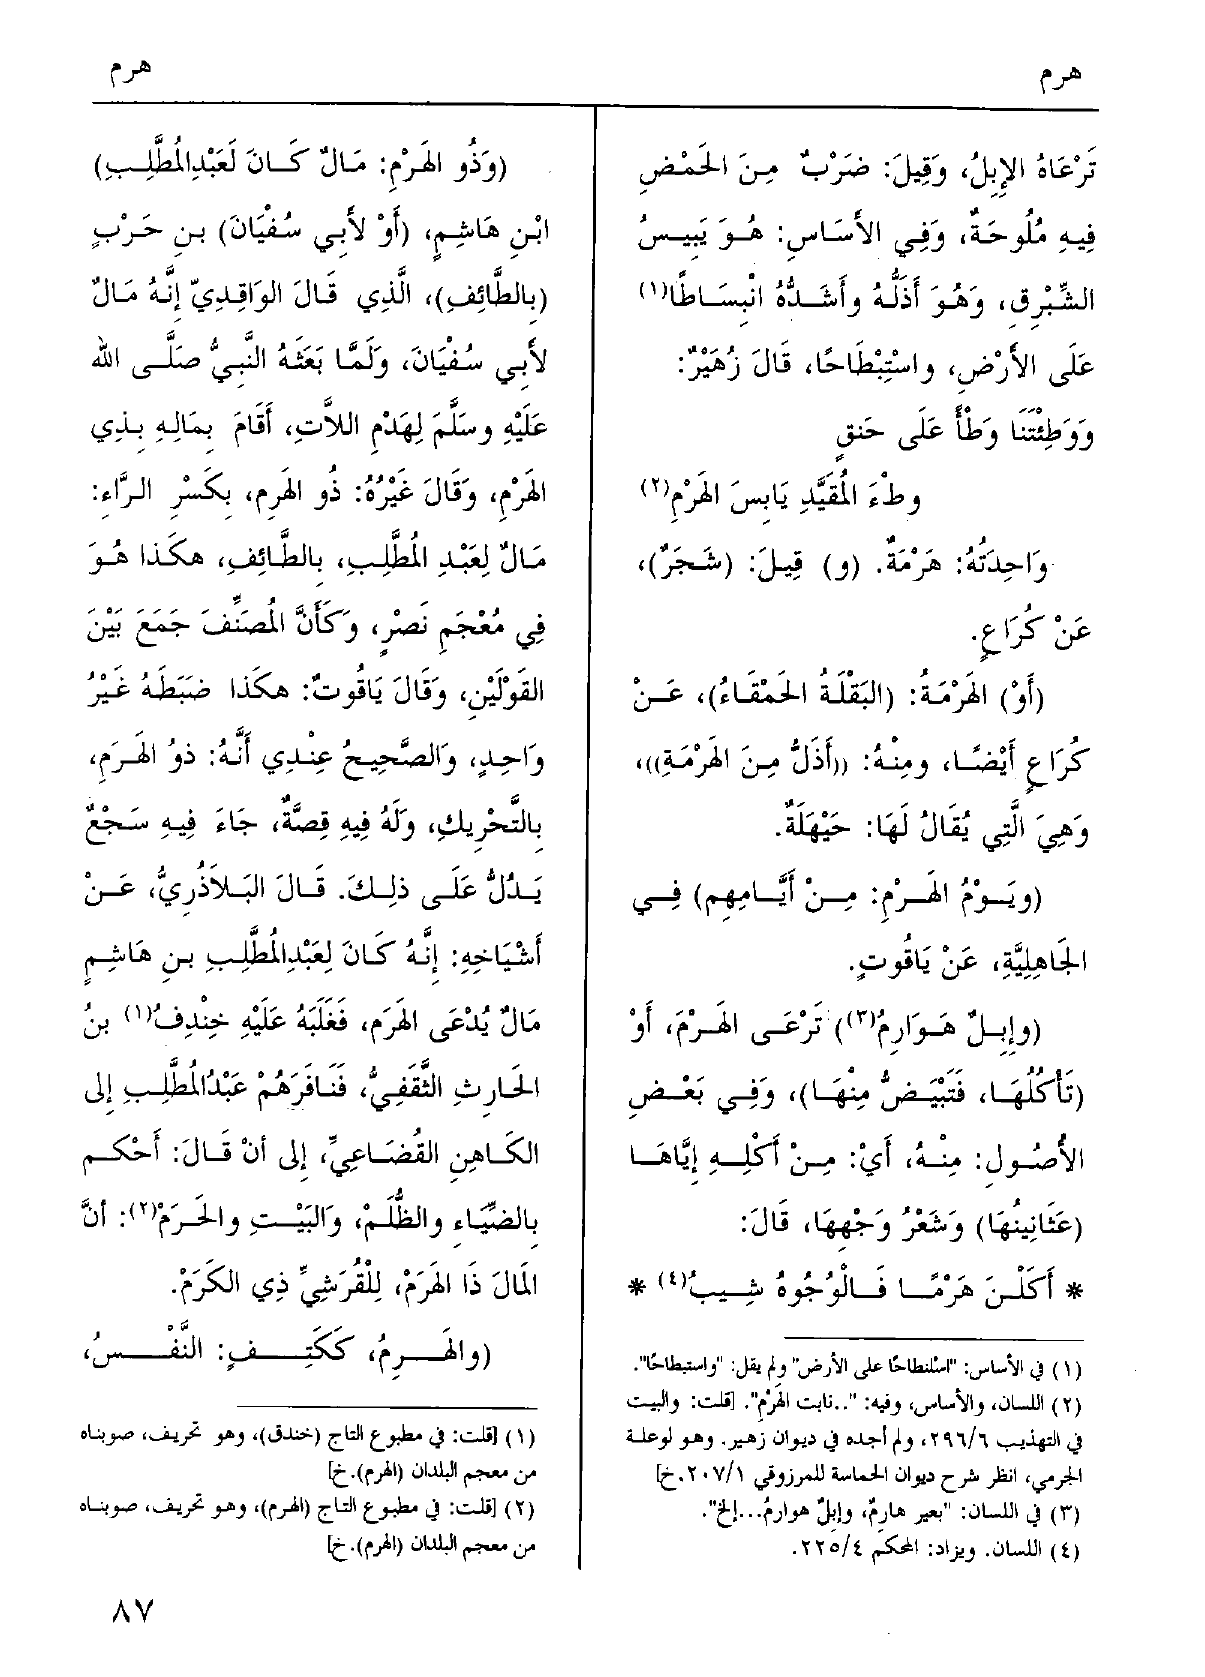 هرم
هرم
تَرْعَاهُ الإِبِلُ، وَقِيلَ: ضَرْبٌ مِنَ الحَمْضِ
فِيهِ مُلُوحَةٌ، وَفِي الأَسَاسِ: هُوَ يَبِيسُ
الشِّبْرِقِ، وَهُوَ أَذَلُّهُ وأَشَدُّهُ انْبِسَاطًا(١)
عَلَى الأَرْضِ، واسْتِبْطَاحًا، قَالَ زُهَيْرٌ:
وَوَطِئْتَنَا وَطْأً عَلَى حَنَقٍ
وطْءَ المُقَيَّدِ يَابِسَ الهَرْمِ(٢)
وَاحِدَتُهُ: هَرْمَةٌ. (و) قِيلَ: (شَجَرٌ)،
عَنْ كُرَاعٍ.
(أَوْ) الهَرْمَةُ: (البَقْلَةُ الحَمْقَاءُ)، عَنْ
كُرَاعٍ أَيْضًا، ومِنْهُ: ((أَذَلُّ مِنَ الهَرْمَةِ))،
وَهِيَ الَّتِي يُقَالُ لَهَا: حَيْهَلَةٌ.
(ويَوْمُ الهَرْمِ: مِنْ أَيَّامِهِم) فِي
الجَاهِلِيَّةِ، عَنْ يَاقُوتٍ.
(وإِبِلٌ هَوَارِمُ(٣)) تَرْعَى الهَرْمَ، أَوْ
(تَأْكُلُهَا، فَتَبْيَضُّ مِنْهَا)، وَفِي بَعْضِ
الأُصُولِ: مِنْهُ، أَيْ: مِنْ أَكْلِهِ إِيَّاهَا
(عَثَانِينُهَا) وَشَعْرُ وَجْهِهَا، قَالَ:
* أَكَلْنَ هَرْمًا فَالْوُجُوهُ شِيبُ(٤) *
(١) في الأساس: "اسلنطاحًا على الأرض" ولم يقل: "واستبطاحًا".
(٢) اللسان، والأساس، وفيه: "..نابت الهَرْمِ". [قلت: والبيت
في التهذيب ٢٩٦/٦، ولم أجده في ديوان زهير. وهو لوعلة
الجرمي، انظر شرح ديوان الحماسة للمرزوقي ٢٠٧/١.خ]
(٣) في اللسان: "بعير هارِمٌ، وإبلٌ هوارِمُ...إلخ".
(٤) اللسان. ويزاد: المحكم ٢٢٥/٤.
(وَذُو الهَرْمِ: مَالٌ كَانَ لَعَبْدِالمُطَّلِبِ)
ابْنِ هَاشِمٍ، (أَوْ لأَبِي سُفْيَانَ) بنِ حَرْبٍ
(بالطَّائِفِ)، الَّذِي قَالَ الوَاقِدِيّ إِنَّهُ مَالٌ
لأَبِي سُفْيَانَ، وَلَمَّا بَعَثَهُ النَّبِيُّ صَلَّى الله
عَلَيْهِ وسَلَّمَ لِهَدْمِ اللاَّتِ، أَقَامَ بِمَالِهِ بِذِي
الهَرْمِ، وَقَالَ غَيْرُهُ: ذُو الهَرِمِ، بِكَسْرِ الرَّاءِ:
مَالٌ لِعَبْدِ المُطَّلِبِ، بِالطَّائِفِ، هكَذا هُوَ
فِي مُعْجَمِ نَصْرٍ، وَكَأَنَّ المُصَنِّفَ جَمَعَ بَيْنَ
القَوْلَيْنِ، وَقَالَ يَاقُوتٌ: هكَذا ضَبَطَهُ غَيْرُ
وَاحِدٍ، والصَّحِيحُ عِنْدِي أَنَّهُ: ذوُ الهَرَمِ،
بِالتَّحْرِيكِ، وَلَهُ فِيهِ قِصَّةٌ، جَاءَ فِيهِ سَجْعٌ
يَدُلُّ عَلَى ذلِكَ. قَالَ البَلاَذُرِيُّ، عَنْ
أَشْيَاخِهِ: إِنَّهُ كَانَ لِعَبْدِالمُطَّلِبِ بنِ هَاشِمٍ
مَالٌ يُدْعَى الهَرَمِ، فَغَلَبَهُ عَلَيْهِ خِنْدِفُ(١) بنُ
الحَارِثِ الثَّقَفِيُّ، فَنَافَرَهُمْ عَبْدُالمُطَّلِبِ إِلى
الكَاهِنِ القُضَاعِيِّ، إِلى أَنْ قَالَ: أَحْكم
بِالضِّيَاءِ والظُّلَمْ، وَالبَيْتِ والحَرَمْ(٢): أَنَّ
المَالَ ذَا الهَرَمْ، لِلْقُرَشِيِّ ذِي الكَرَمْ.
(والهَرِمُ، كَكَتِفٍ: النَّفْسُ،
(١) [قلت: في مطبوع التاج (خندق)، وهو تحريف، صوبناه
من معجم البلدان (الهرم).خ]
(٢) [قلت: في مطبوع التاج (الهرم)، وهو تحريف، صوبناه
من معجم البلدان (الهرم).خ]
٨٧